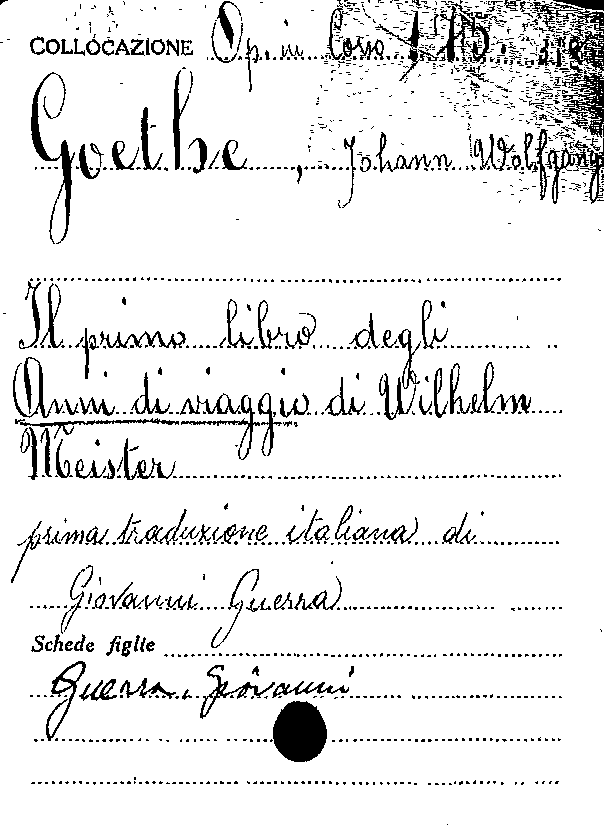 COLLOCAZIONE Op. in Corso
Goethe, Johann Wolfgang
Il primo libro degli
Anni di viaggio di Wilhelm
Meister
prima traduzione italiana di
Giovanni Guerra
Schede figlie
Guerra, Giovanni